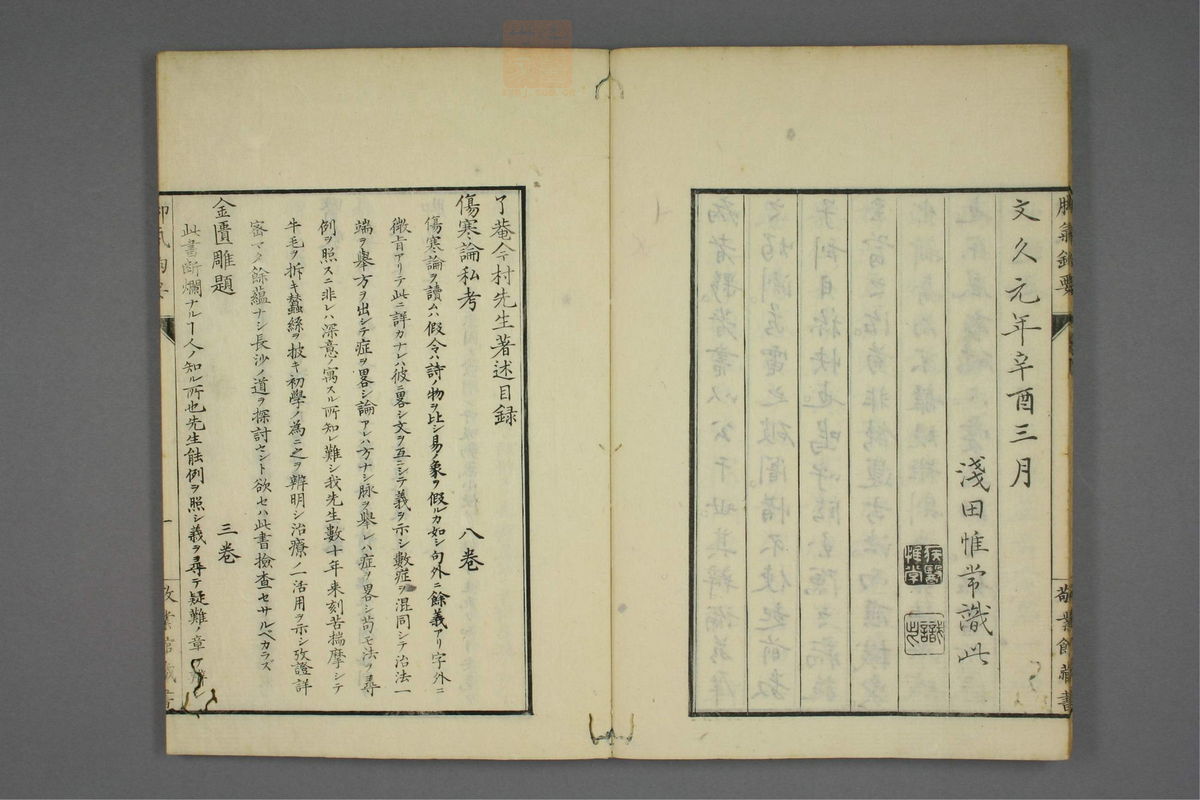 文久元年辛酉三月
淺田惟常識此
敬業館藏書
了菴今村先生著述目録
傷寒論私考　　八卷
傷寒論ヲ讀ムハ假令ハ詩ノ物ヲ比シ易ノ象ヲ假ルカ如シ句外ニ餘義アリ字外ニ
微旨アリテ此ニ詳カナレハ彼ニ畧シ文ヲ互ニシテ義ヲ示シ數症ヲ混同シテ治法一
端ヲ舉方ヲ出シテ症ヲ畧シ論アレハ方ナシ脉ヲ舉レハ症ヲ畧シ苟モ法ヲ尋
例ヲ照スニ非レハ深意ノ寓スル所知レ難シ我先生數十年来刻苦揣摩シテ
牛毛ヲ拆キ蠶絲ヲ披キ初學ノ為ニ之ヲ辨明シ治療ノ一活用ヲ示シ攷證詳
密マタ餘蘊ナシ長沙ノ道ヲ探討セント欲セハ此書檢査セサルベカラズ
金匱雕題　　三卷
此書断爛ナルヿ人ノ知ル所也先生能例ヲ照シ義ヲ尋テ疑難ノ章
一